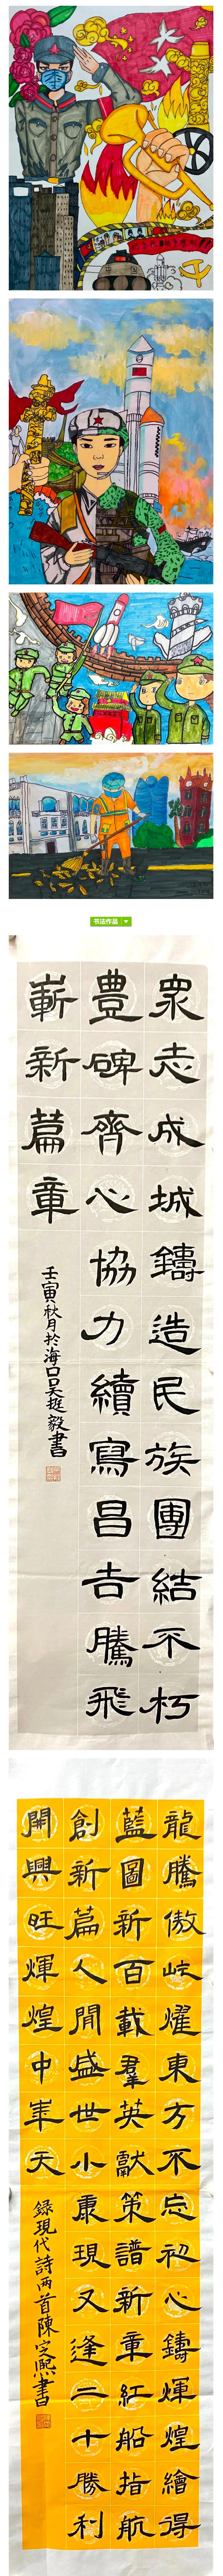 书法作品
眾志成城鑄造民族團結不朽
豐碑齊心協力續寫昌吉騰飛
嶄新篇章
壬寅秋月於海口吴挺毅書
龍騰傲屹耀東方不忘初心鑄輝煌繪得
藍圖新百載羣英獻策譜新章紅船指航
創新篇人間盛世小康現又逢二十勝利
開興旺輝煌中華天
錄現代詩两首陳定熙書